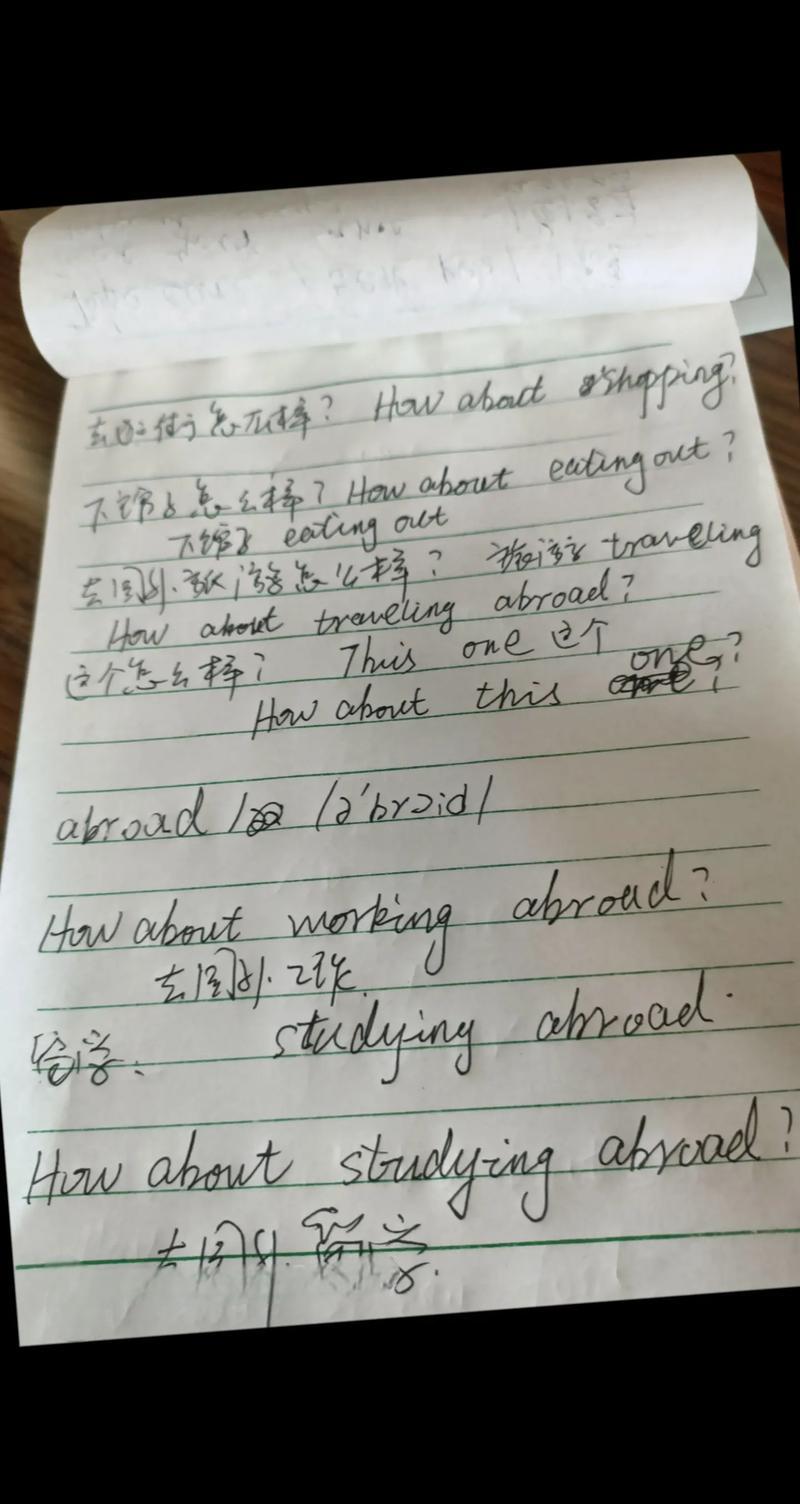 去逛街怎么样? How about shopping?
下馆子怎么样? How about eating out?
下馆子 eating out
去国外旅游怎么样? 旅游 traveling
How about traveling abroad?
这个怎么样? This one 这个
How about this one?
abroad / /ə'brɔid/
How about working abroad?
去国外工作.
留学: studying abroad.
How about studying abroad?
去国外留学.